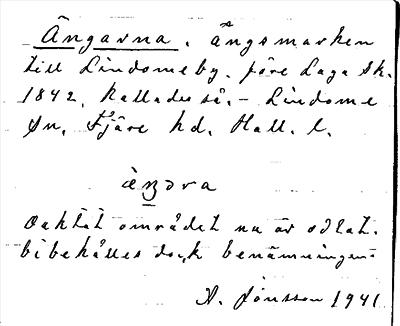 Ängarna. Ängsmarken
till Lindomeby. före Laga Sk.
1842, kallades så. - Lindome
sn. Fjäre hd. Hall. l.
èŋ̠ɔra
Oaktat området nu är odlat.
bibehålles dock benämningen.
A. Jönsson 1941